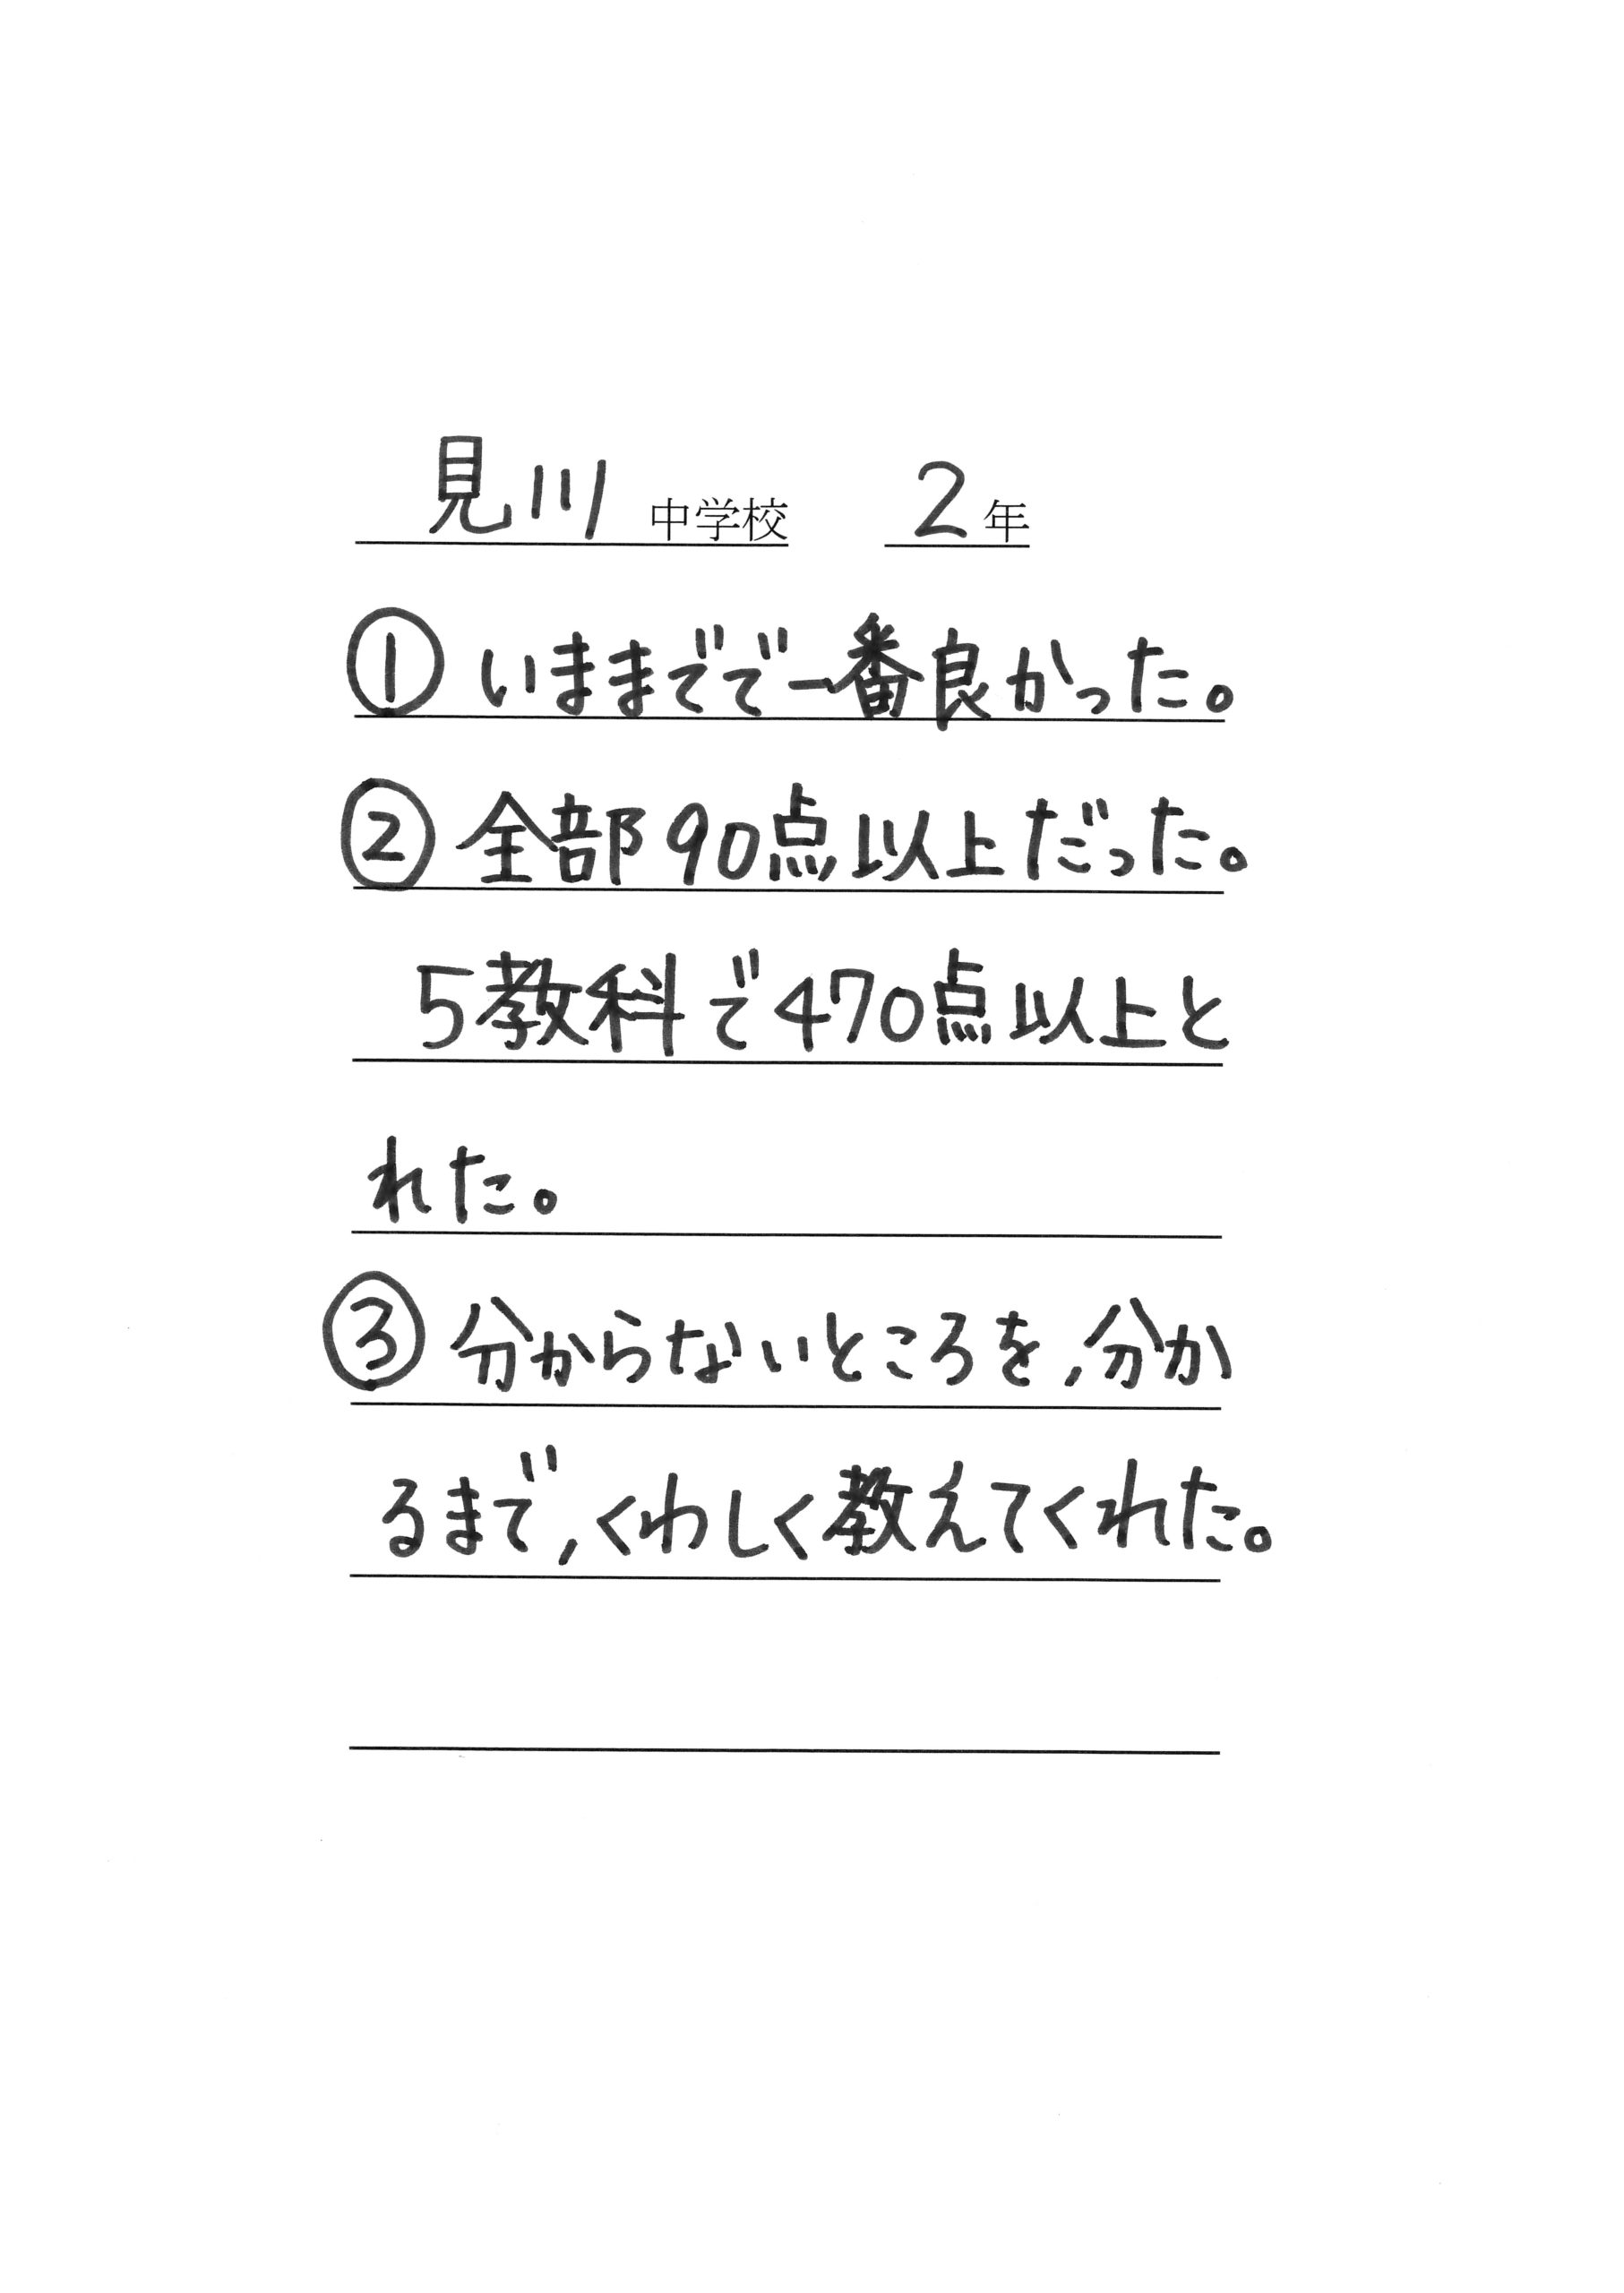 見川 中学校 2年
① いままでで一番良かった。
② 全部90点以上だった。
5教科で470点以上と
れた。
③ 分からないところを,分か
るまで,くわしく教えてくれた。